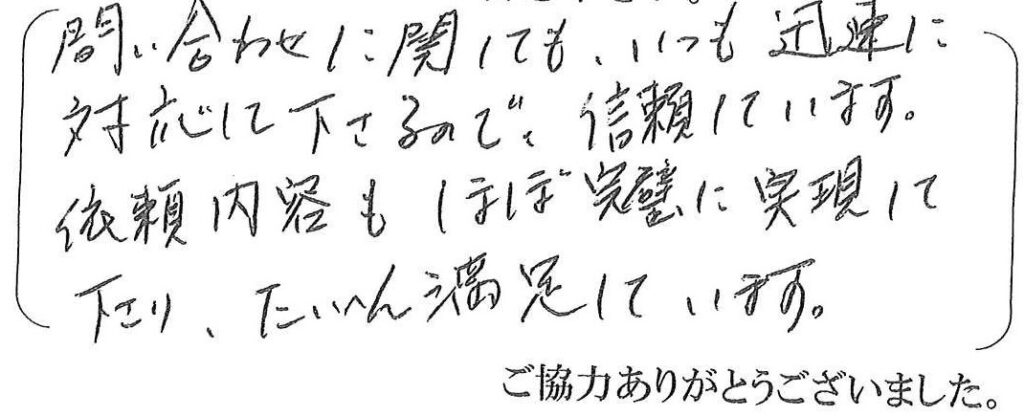 問い合わせに関しても、いつも迅速に
対応して下さるので、信頼しています。
依頼内容もほぼ完璧に実現して
下さり、たいへん満足しています。
ご協力ありがとうございました。